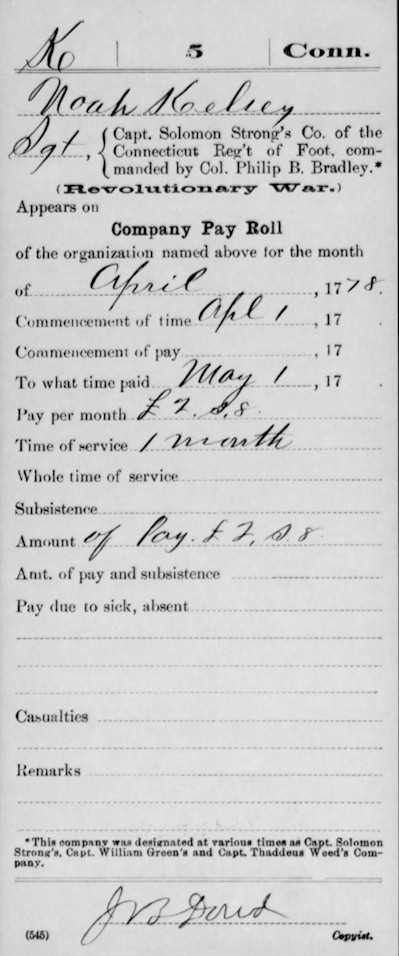 K | 5 | Conn.
Noah Kelsey
Sgt, { Capt. Solomon Strong's Co. of the
Connecticut Reg't of Foot, com-
manded by Col. Philip B. Bradley.*
(Revolutionary War.)
Appears on
Company Pay Roll
of the organization named above for the month
of April, 1778.
Commencement of time Apl 1, 17 .
Commencement of pay , 17 .
To what time paid May 1, 17 .
Pay per month £ 2, s, 8
Time of service 1 month
Whole time of service
Subsistence
Amount of Pay. £ 2, s. 8
Amt. of pay and subsistence
Pay due to sick, absent
Casualties
Remarks
*This company was designated at various times as Capt. Solomon
Strong's, Capt. William Green's and Capt. Thaddeus Weed's Com-
pany.
J B
(545) Copyist.